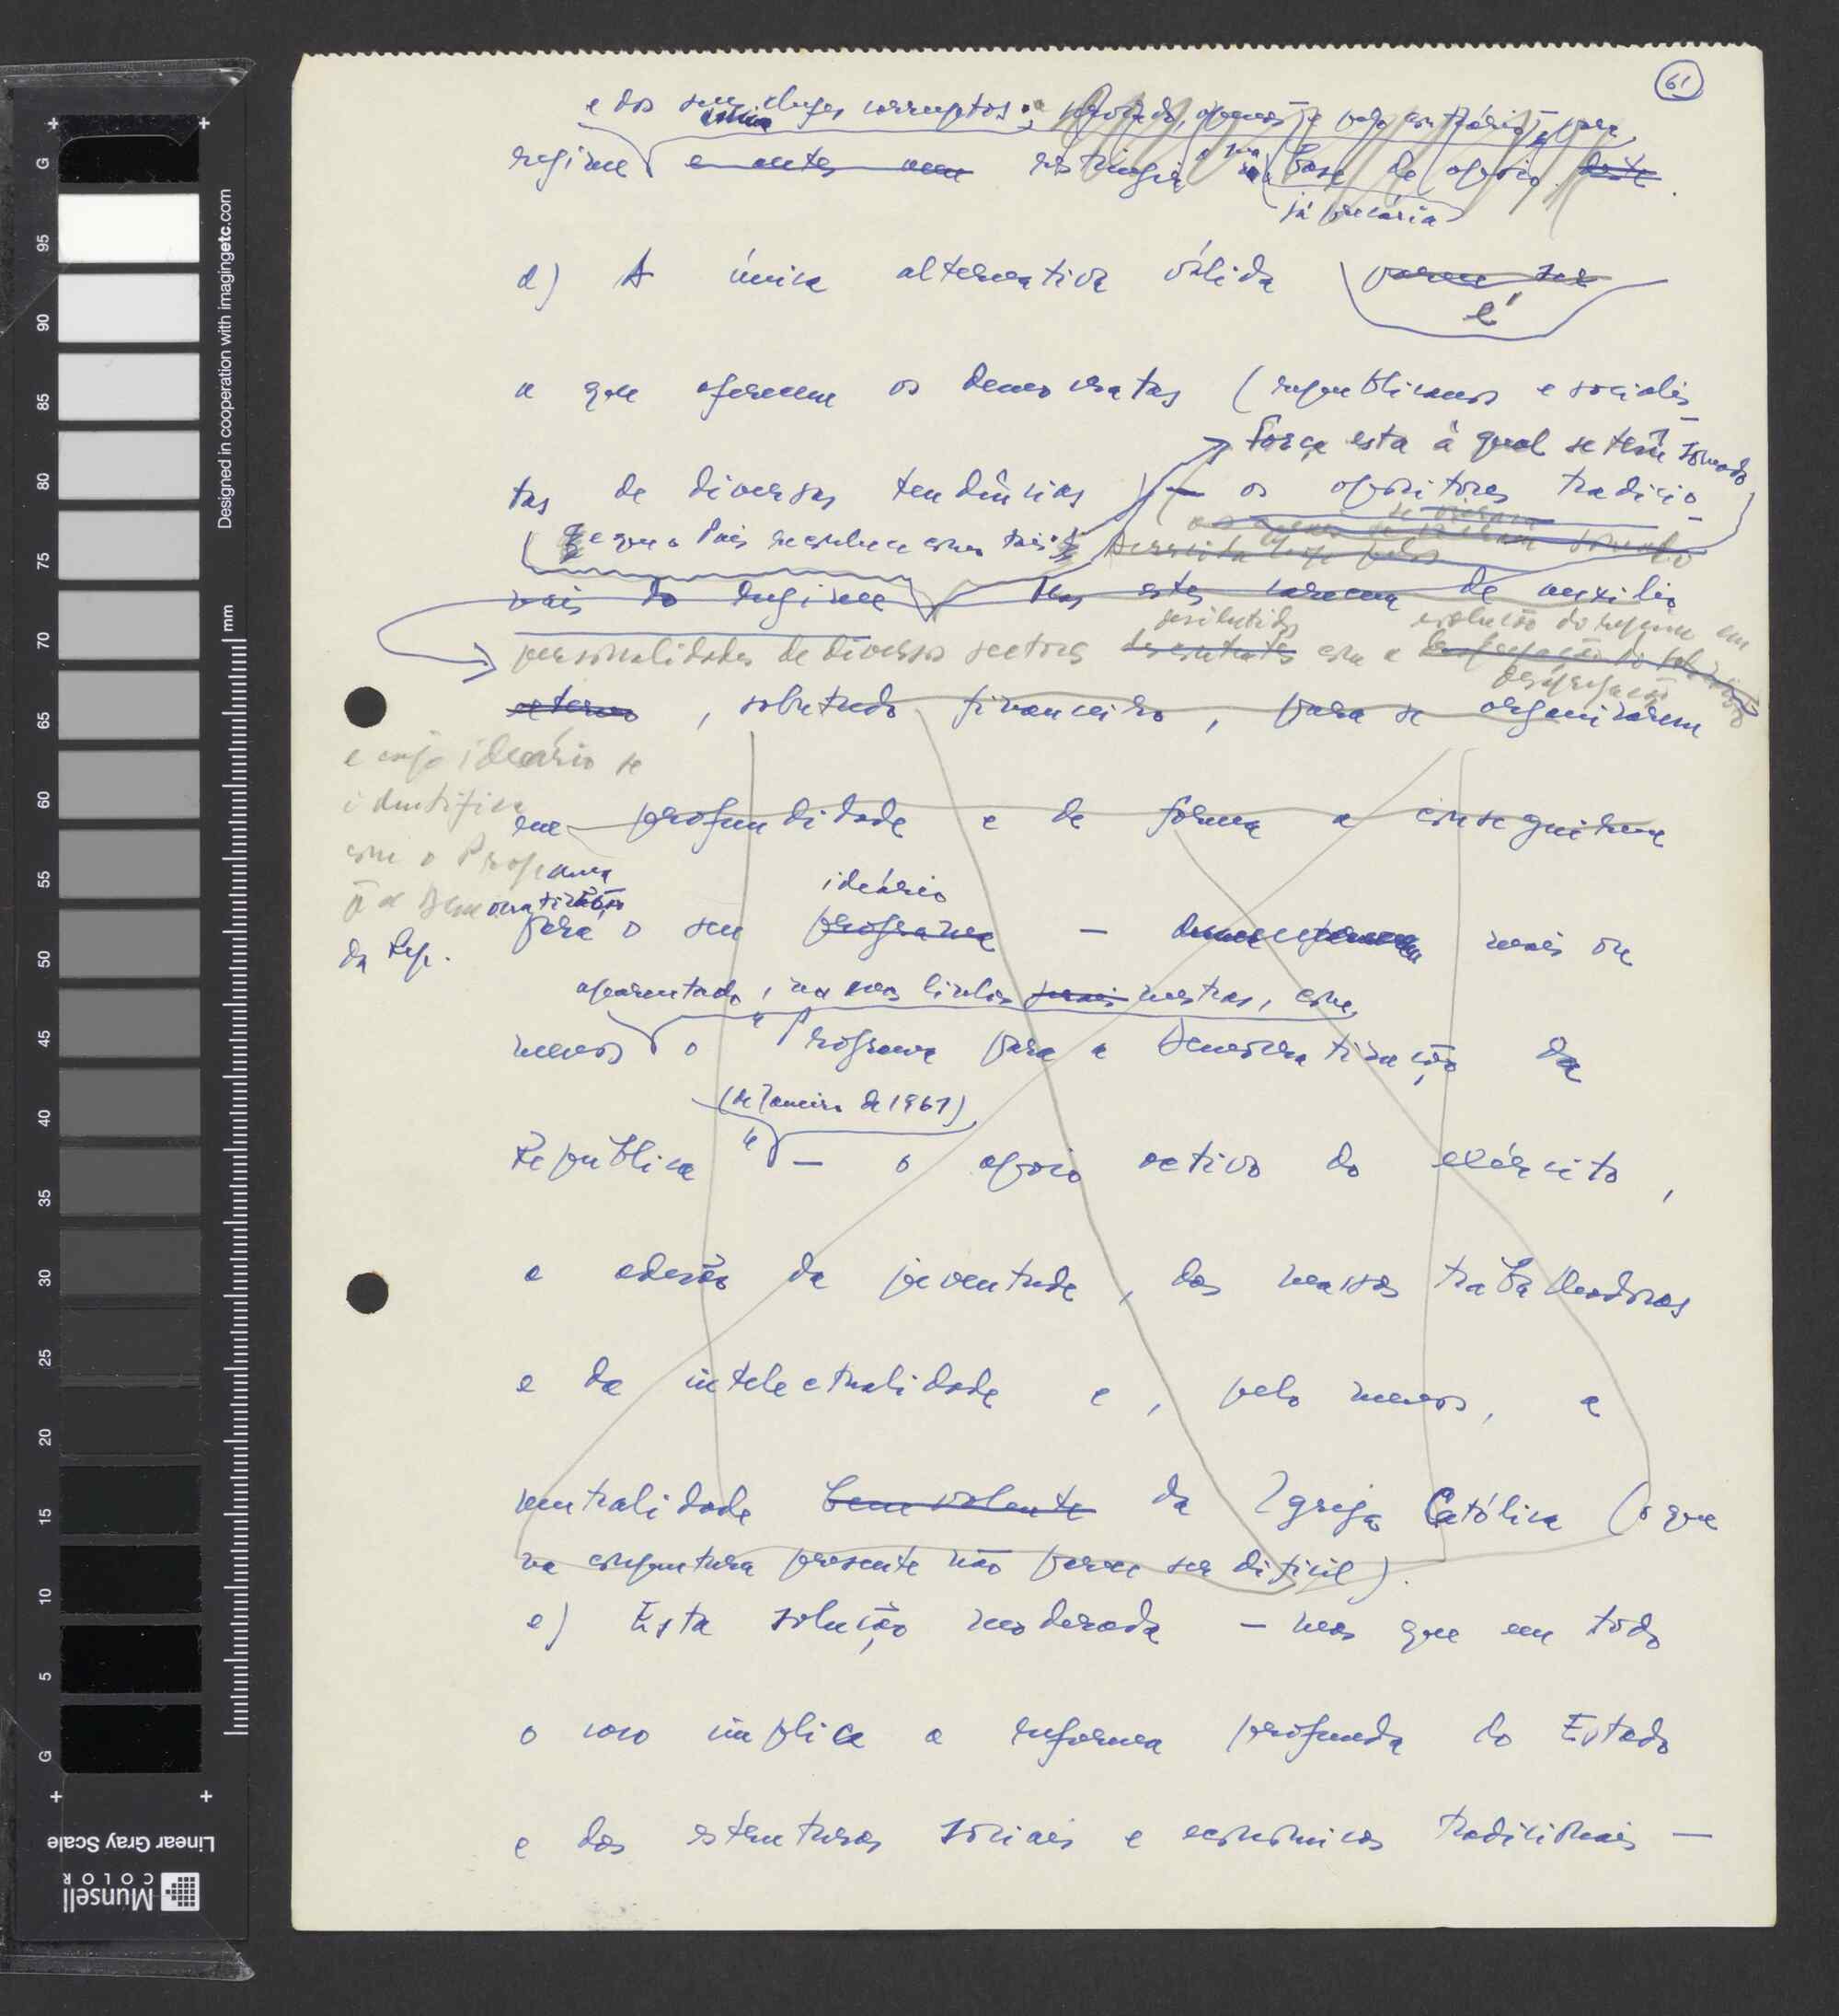 61
e dos seus chefes corruptos;
regime e antes restringir a sua base de apoio deste.
já precária
d) A única alternativa válida parece ser
é
a que oferecem os democratas (republicanos e socialis-
força esta à qual se têm somado
tas de diversas tendências — os opositores tradicio-
e que o País reconhece como tais
nais do regime Mas estes carecem de auxílio
desiludidos evolução do regime em
personalidades de diversos sectores com a
desagregação
externo, sobretudo financeiro, para se organizarem
e cujo ideário se
identifica
em profundidade e de forma a conseguirem
com o Programa
ideário
p. a Democratização
para o seu programa — mais ou
da Rep.
aparentado, nas suas linhas mestras, com
menos o "Programa para a Democratização da
(de Janeiro de 1961)
República" — o apoio activo do exército,
a adesão da juventude, das massas trabalhadoras
e da intelectualidade e, pelo menos, a
neutralidade benevolente da Igreja Católica (o que
na conjuntura presente não parece ser difícil).
e) Esta solução moderada — mas que em todo
o caso implica a reforma profunda do Estado
e das estruturas sociais e económicas tradicionais —
Designed in cooperation with imagingetc.com
mm
G 95 90 85 80 75 70 65 60 55 50 45 40 35 30 25 20 15 10 5 G
Linear Gray Scale
Munsell
COLOR